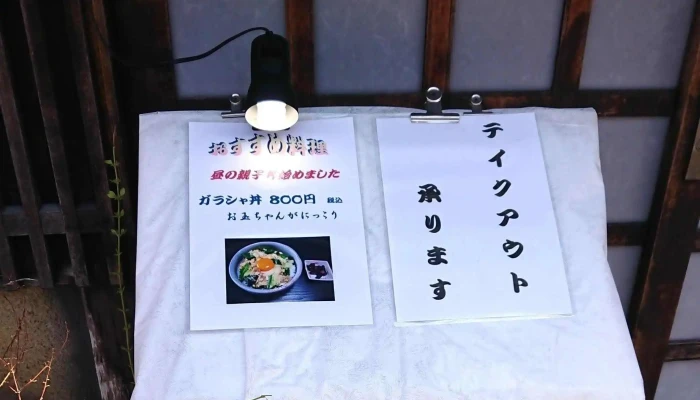 おすすめ料理
昼の親子丼始めました
ガラシャ丼 800円 税込
お玉ちゃんがにっこり
テイクアウト
承ります